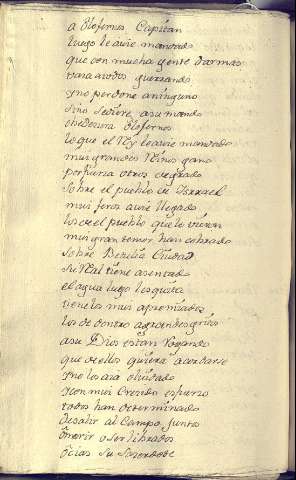 a Olofernes Capitan
luego le avie mandado
que con mucha gente d'armas
vaya a todos guerreando
y no perdone a ninguno
sino se diere a su mando
obedesera Olofernes
lo que el Rey le avie mandado
muy grandes Reinos gano
por furia otros de grado
sobre el pueblo de Isrrael
muy feros avie llegado
los de el pueblo que lo vieron
muy gran temor han cobrado
sobre Betulia Ciudad
su Real tiene asentado
el agua luego les quita
tiene los muy apremiados
los de dentro a grandes gritos
a su Dios estan Rogando
que de ellos quiera acordarse
y no los aia olvidado
y con muy Crecido esfuerzo
todos han determinado
de salir al Campo juntos
o morir o ser librados
Ocias su Sacerdote